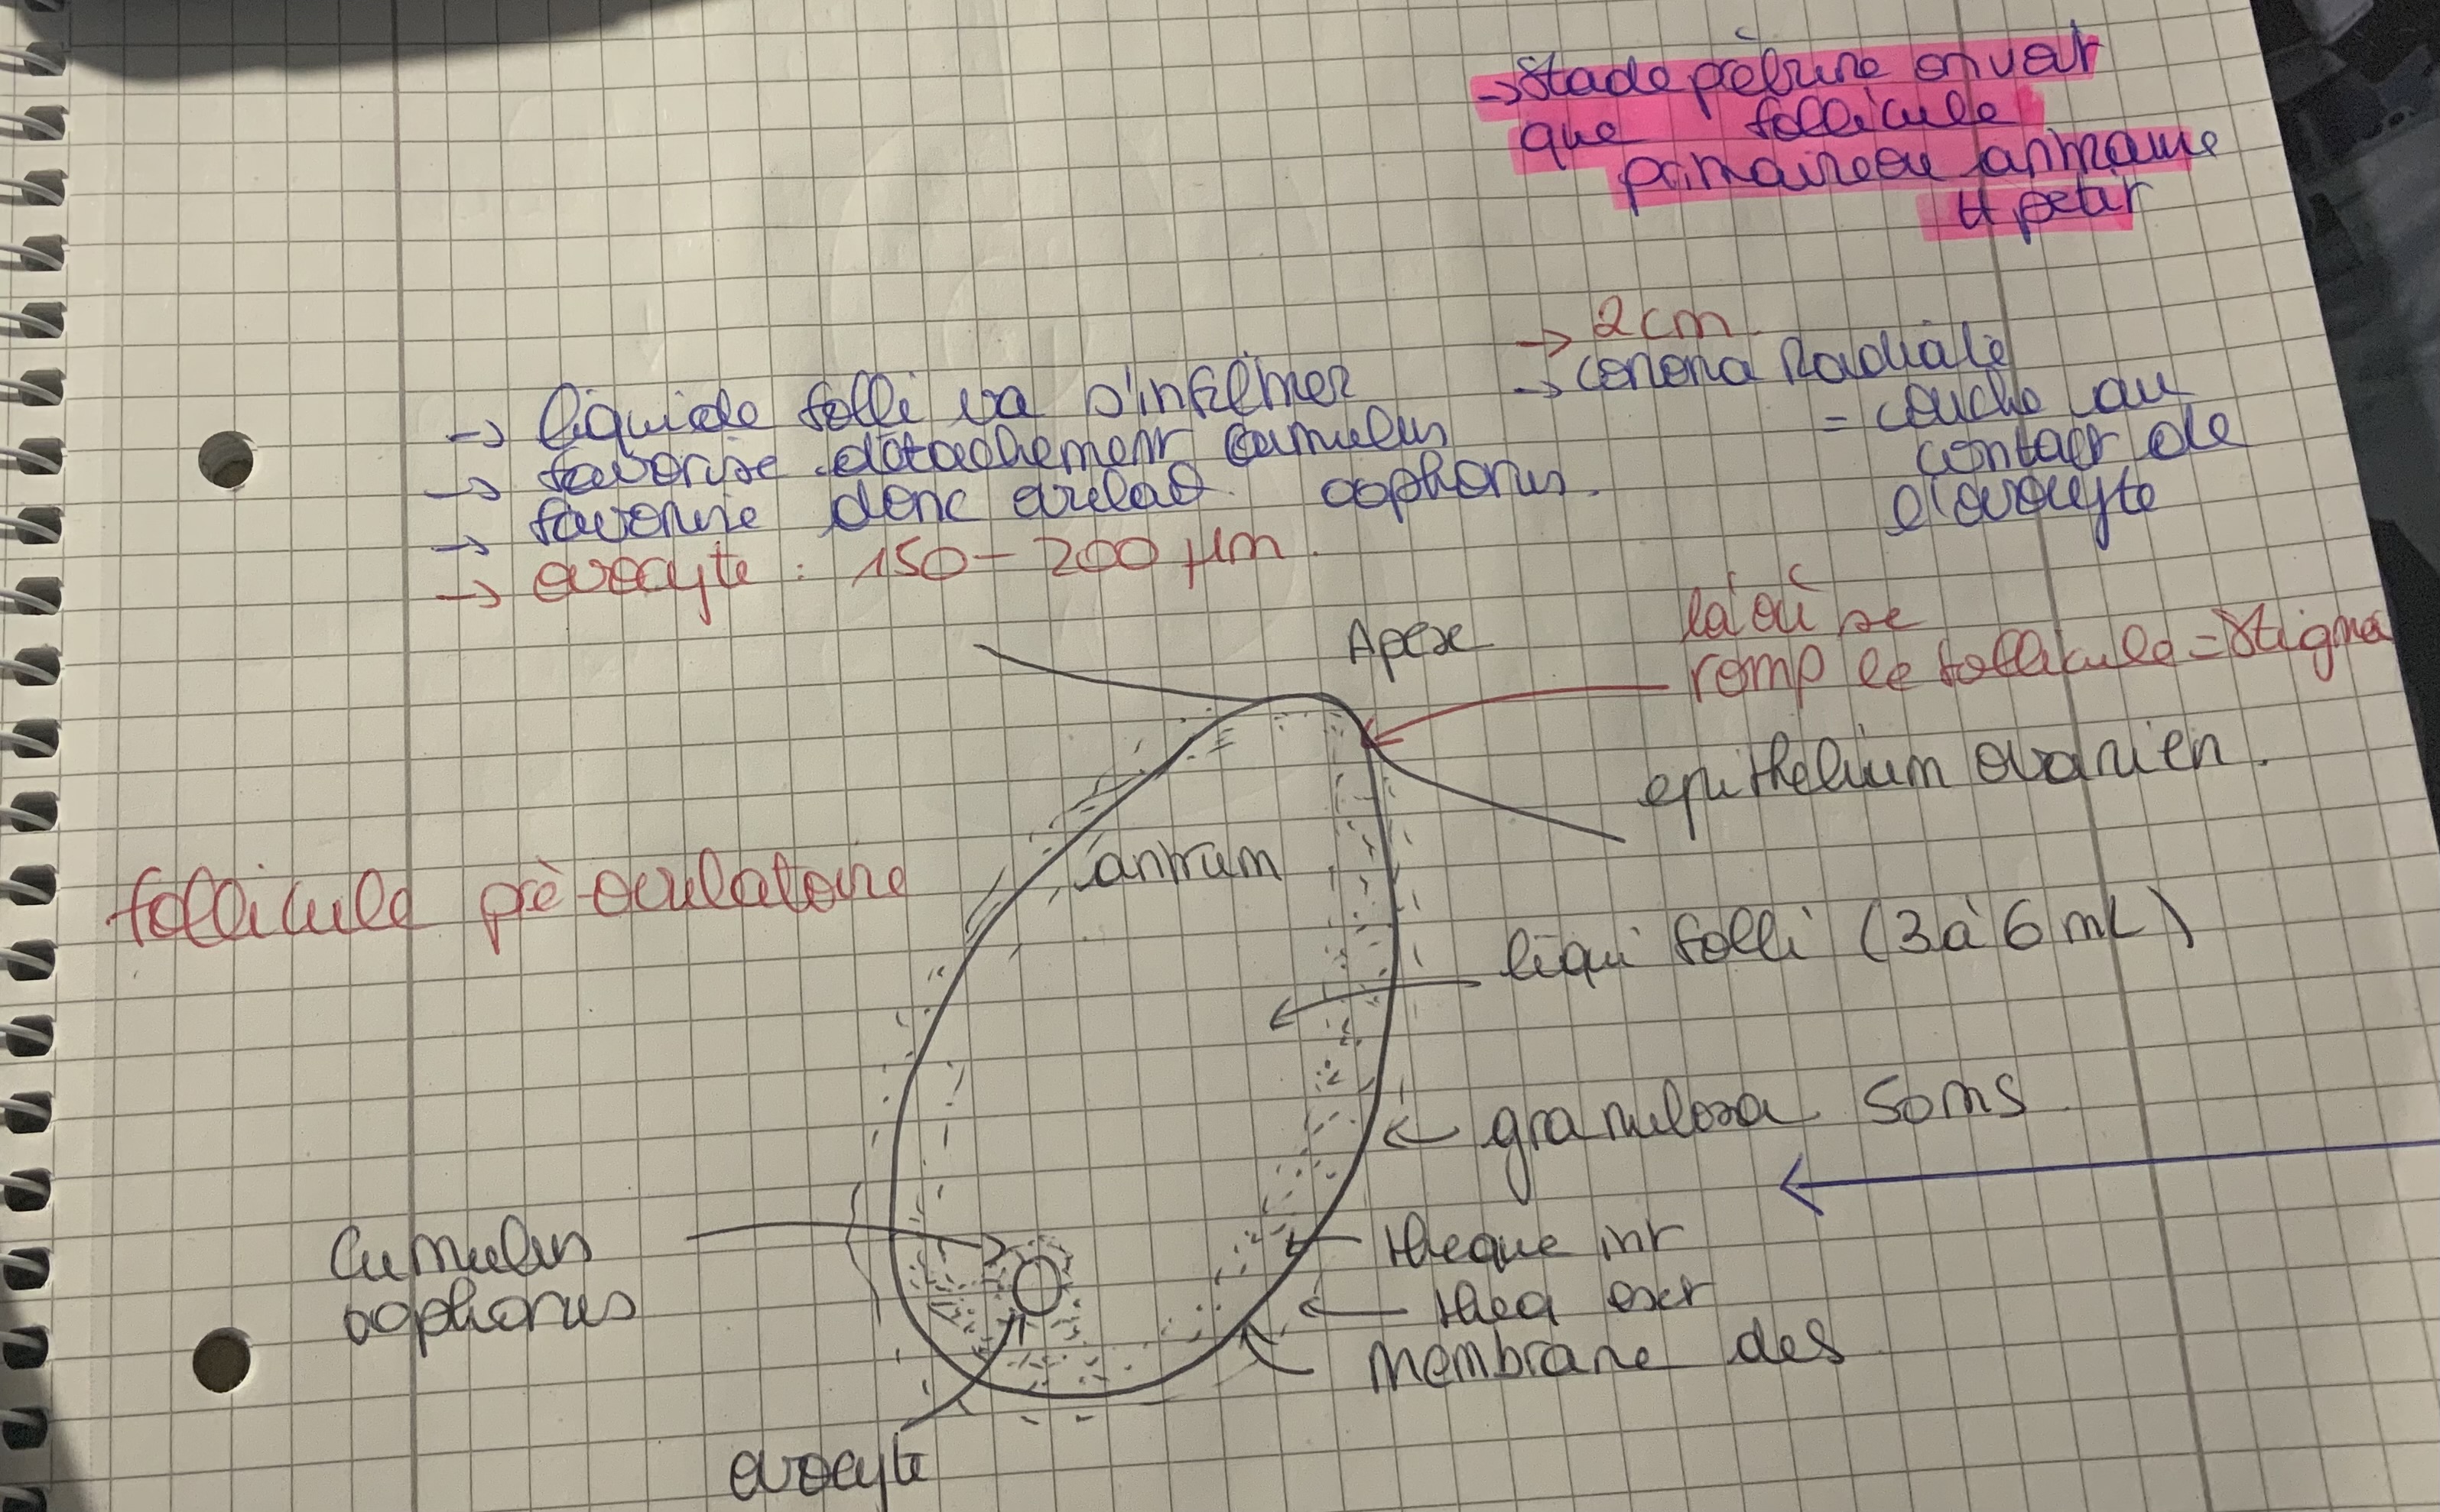 → Stade prépubère on voit
que follicule
primaire ou antraux
tt petit
→ 2cm
→ corona Radiale
= couche au
contact de
l'ovocyte
→ liquide folli va s'infiltrer
→ favorise détachement cumulus
oophorus.
→ favorise donc ovulat°
→ ovocyte : 150 - 200 µm.
Apex
là où se
romp le follicule = stigma
epithelium ovarien.
antrum
follicule pré-ovulatoire
liqui folli (3 à 6 mL)
granulosa
Cumulus
oophorus
theque int
theq ext
membrane des
ovocyte